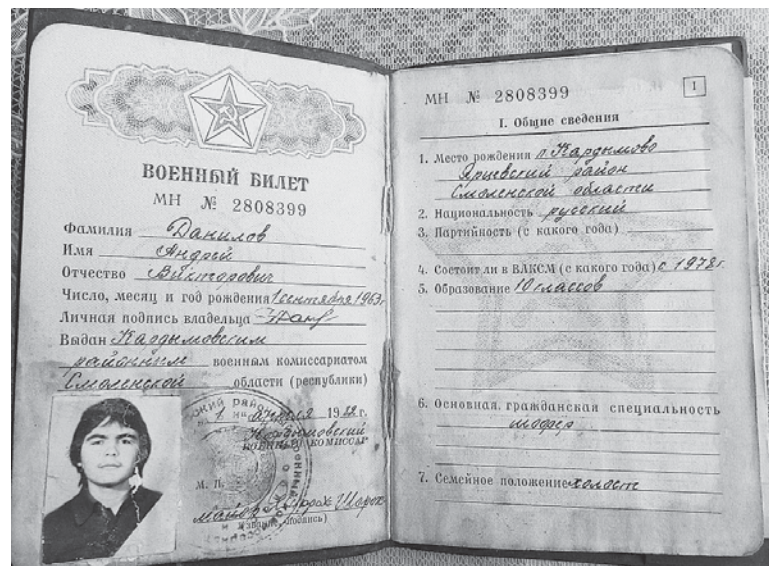 ВОЕННЫЙ БИЛЕТ
МН № 2808399
Фамилия Данилов
Имя Андрей
Отчество Викторович
Число, месяц и год рождения 1 сентября 1963г.
Личная подпись владельца
Выдан Кардымовским
районным военным комиссариатом
Смоленской области (республики)
1 апреля 19 г.
Кардымовский
ВОЕННЫЙ КОМИССАР
М. П.
майор
(звание, подпись)
МН № 2808399
1
I. Общие сведения
1. Место рождения п. Кардымово
Ярцевский район
Смоленской области
2. Национальность русский
3. Партийность (с какого года)
4. Состоит ли в ВЛКСМ (с какого года) с 1978г.
5. Образование 10 классов
6. Основная гражданская специальность
шофер
7. Семейное положение холост